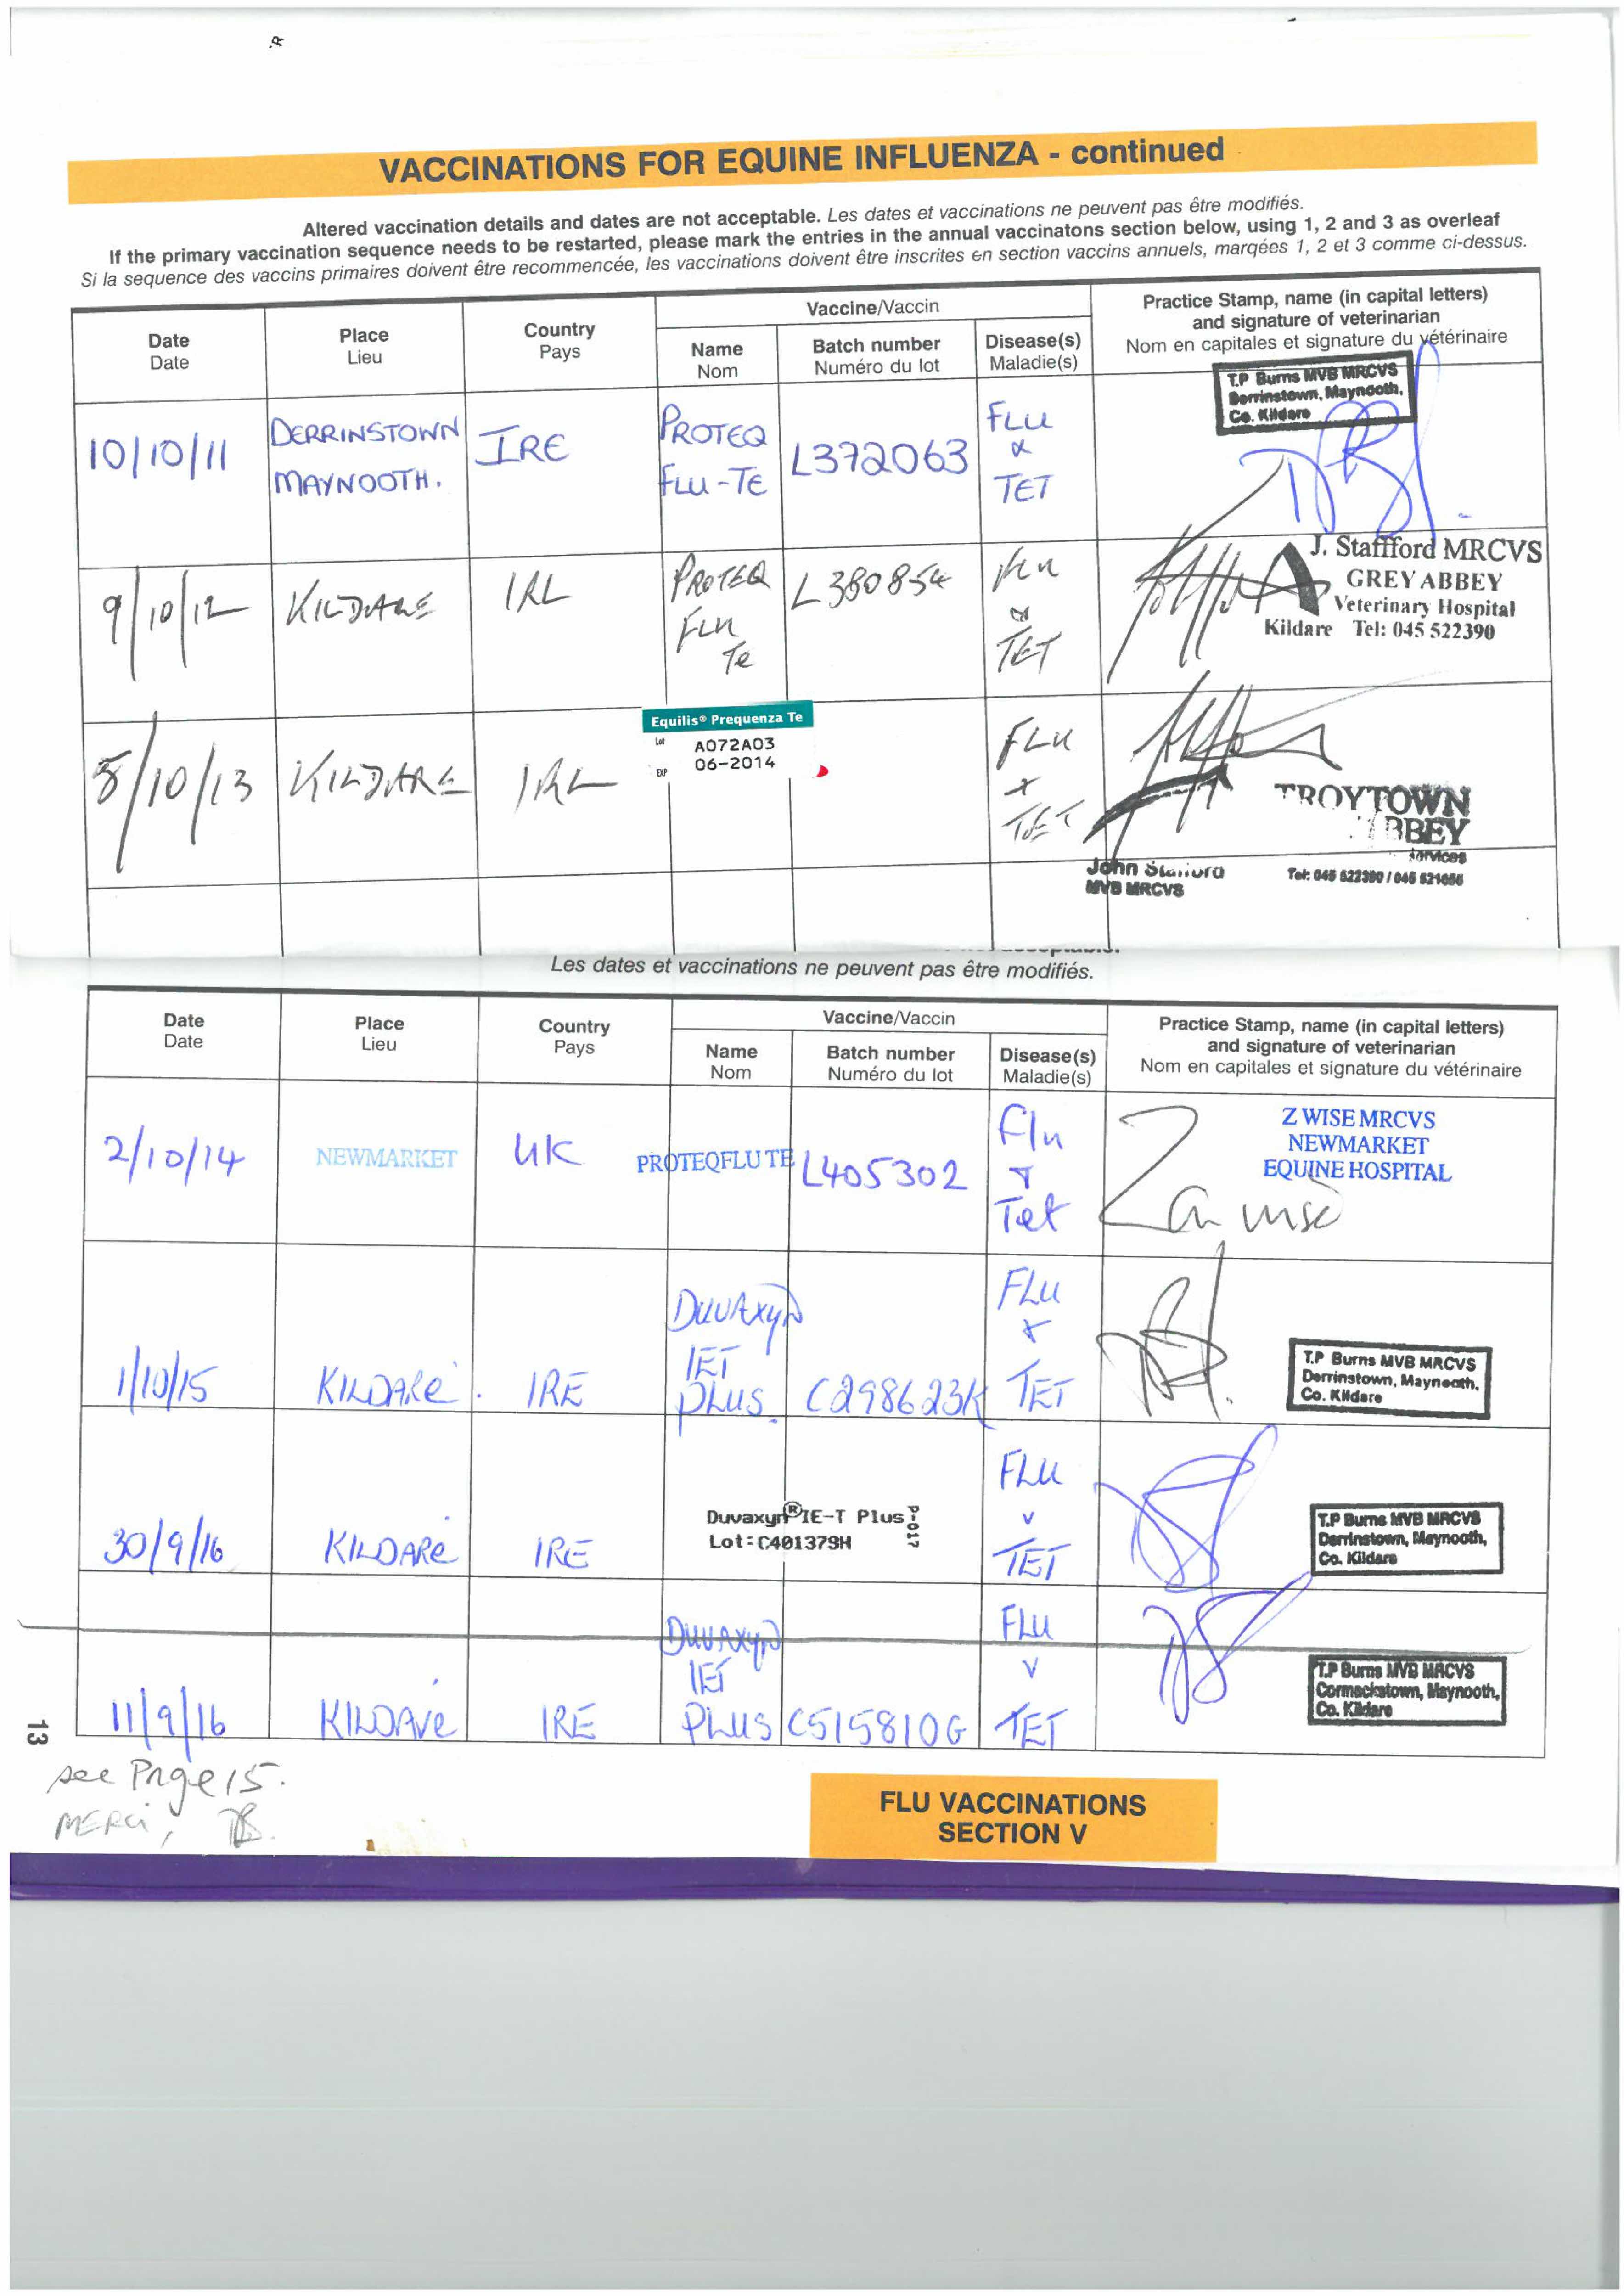 VACCINATIONS FOR EQUINE INFLUENZA - continued
Altered vaccination details and dates are not acceptable. Les dates et vaccinations ne peuvent pas être modifiés.
If the primary vaccination sequence needs to be restarted, please mark the entries in the annual vaccinatons section below, using 1, 2 and 3 as overleaf
Si la sequence des vaccins primaires doivent être recommencée, les vaccinations doivent être inscrites en section vaccins annuels, marqées 1, 2 et 3 comme ci-dessus.
Date
Date
Place
Lieu
Country
Pays
Vaccine/Vaccin
Name
Nom
Batch number
Numéro du lot
Disease(s)
Maladie(s)
Practice Stamp, name (in capital letters)
and signature of veterinarian
Nom en capitales et signature du vétérinaire
10/10/11
DERRINSTOWN
MAYNOOTH.
IRE
PROTEQ
FLU-TE
L372063
FLU
&
TET
T.P Burns MVB MRCVS
Derrinstown, Maynooth,
Co. Kildare
9/10/12
KILDARE
IRL
PROTEQ
FLU
Te
L380854
Flu
&
TET
J. Staffford MRCVS
GREY ABBEY
Veterinary Hospital
Kildare Tel: 045 522390
8/10/13
KILDARE
IRL
Equilis® Prequenza Te
Lot A072A03
EXP 06-2014
FLU
+
TET
TROYTOWN
BBEY
services
John Stafford
MVB MRCVS
Les dates et vaccinations ne peuvent pas être modifiés.
Date
Date
Place
Lieu
Country
Pays
Vaccine/Vaccin
Name
Nom
Batch number
Numéro du lot
Disease(s)
Maladie(s)
Practice Stamp, name (in capital letters)
and signature of veterinarian
Nom en capitales et signature du vétérinaire
2/10/14
NEWMARKET
UK
PROTEQFLU TE
L405302
Flu
+
Tet
Z WISE MRCVS
NEWMARKET
EQUINE HOSPITAL
1/10/15
KILDARE.
IRE
DUVAXYN
IET
PLUS.
C298623K
FLU
+
TET
T.P Burns MVB MRCVS
Derrinstown, Maynooth,
Co. Kildare
30/9/16
KILDARE
IRE
Duvaxyn® IE-T Plus
Lot: C401379H
P-017
FLU
v
TET
T.P Burns MVB MRCVS
Derrinstown, Maynooth,
Co. Kildare
11/9/16
KILDARE
IRE
DUVAXYN
IET
PLUS
C515810G
FLU
v
TET
T.P Burns MVB MRCVS
Cormackstown, Maynooth,
Co. Kildare
13
see Page 15.
MERCI,
FLU VACCINATIONS
SECTION V